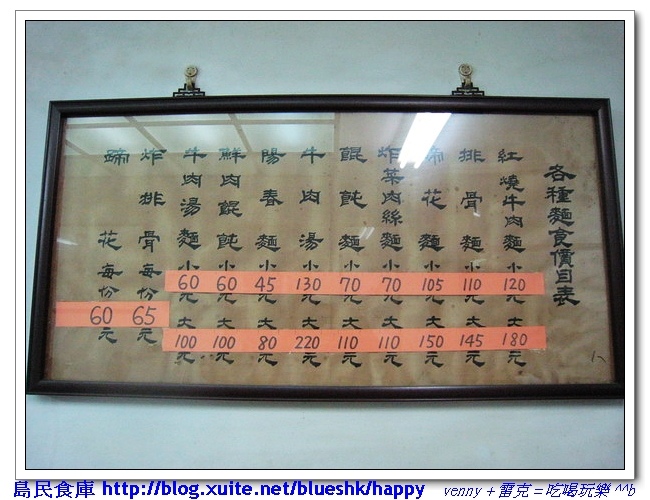 各種麵食價目表
紅燒牛肉麵小120元大180元
排骨麵小110元大145元
蹄花麵小105元大150元
炸菜肉絲麵小70元大110元
餛飩麵小70元大110元
牛肉湯小130元大220元
陽春麵小45元大80元
鮮肉餛飩小60元大100元
牛肉湯麵小60元大100元
炸排骨每份65元
蹄花每份60元
島民食庫 http://blog.xuite.net/blueshk/happy venny + 雷克 = 吃喝玩樂 ^^b